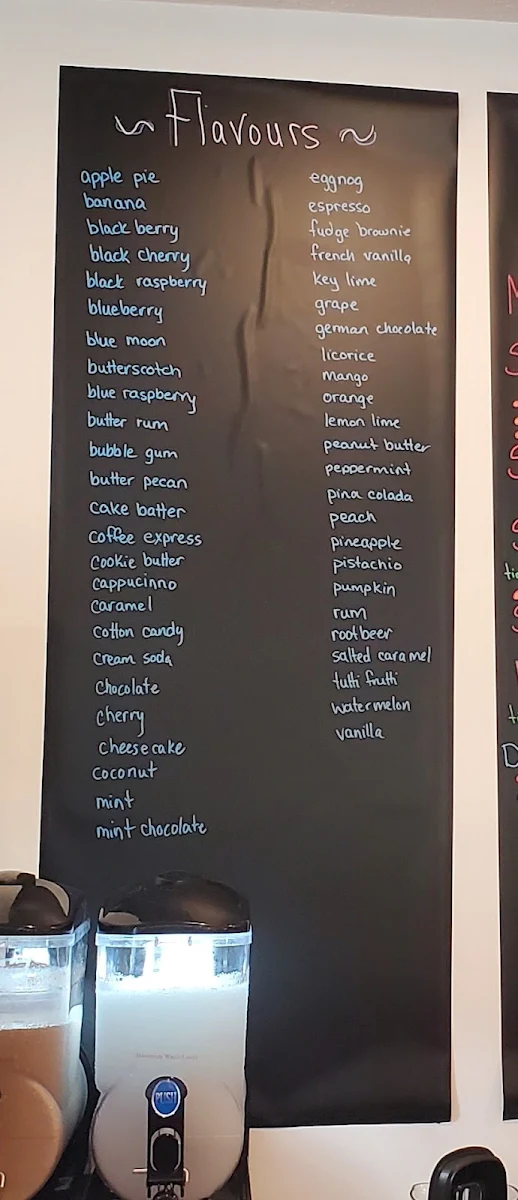 Flavours
apple pie
banana
black berry
black cherry
black raspberry
blueberry
blue moon
butterscotch
blue raspberry
butter rum
bubble gum
butter pecan
cake batter
coffee express
cookie butter
cappucinno
caramel
cotton candy
cream soda
chocolate
cherry
cheesecake
coconut
mint
mint chocolate
eggnog
espresso
fudge brownie
french vanilla
key lime
grape
german chocolate
licorice
mango
orange
lemon lime
peanut butter
peppermint
pina colada
peach
pineapple
pistachio
pumpkin
rum
rootbeer
salted caramel
tutti frutti
watermelon
vanilla
PUSH